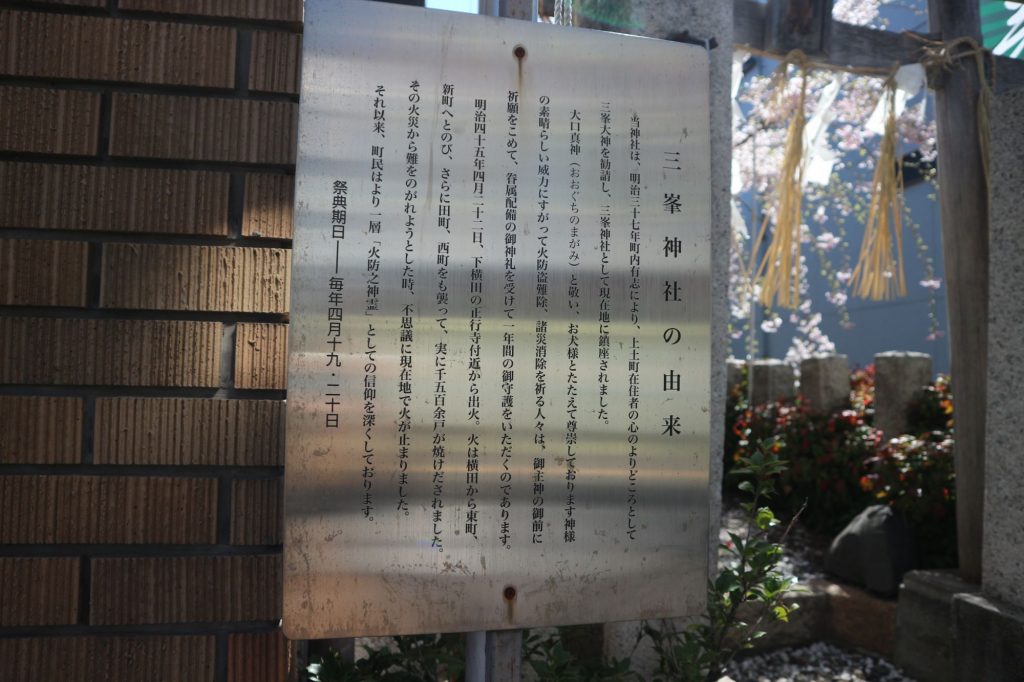 三峯神社の由来
当神社は、明治三十七年町内有志により、上土町在住者の心のよりどころとして
三峯大神を勧請し、三峯神社として現在地に鎮座されました。
大口真神（おおぐちのまがみ）と敬い、お犬様とたたえて尊崇しております神様
の素晴らしい威力にすがって火防盗難除、諸災消除を祈る人々は、御主神の御前に
祈願をこめて、眷属配備の御神札を受けて一年間の御守護をいただくのであります。
明治四十五年四月二十二日、下横田の正行寺付近から出火。火は横田から東町、
新町へとのび、さらに田町、西町をも襲って、実に千五百余戸が焼けだされました。
その火災から難をのがれようとした時、不思議に現在地で火が止まりました。
それ以来、町民はより一層「火防之神霊」としての信仰を深くしております。
祭典期日──毎年四月十九・二十日